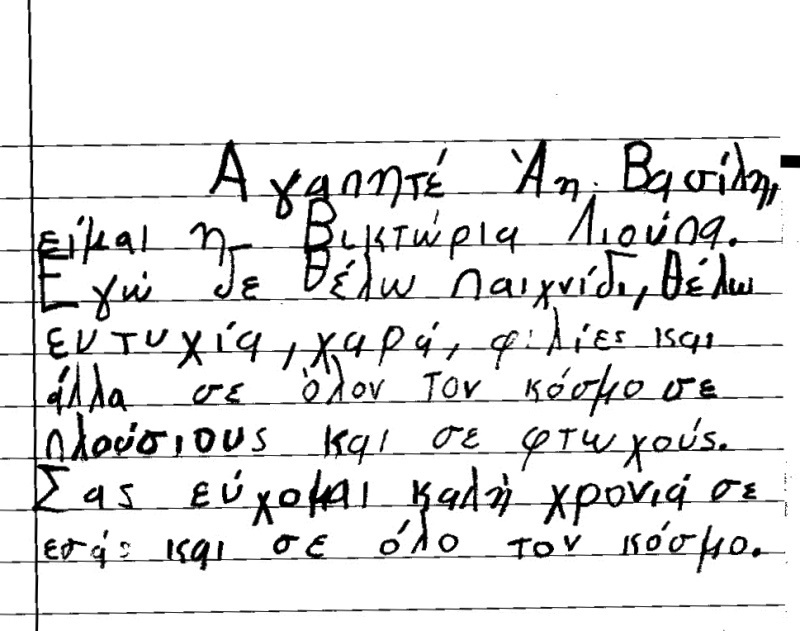 Αγαπητέ Άη Βασίλη,
είμαι η Βικτώρια Λιούπα.
Εγώ δε θέλω παιχνίδι, θέλω
ευτυχία, χαρά, φιλίες και
άλλα σε όλον τον κόσμο σε
πλούσιους και σε φτωχούς.
Σας εύχομαι καλή χρονιά σε
εσάς και σε όλο τον κόσμο.